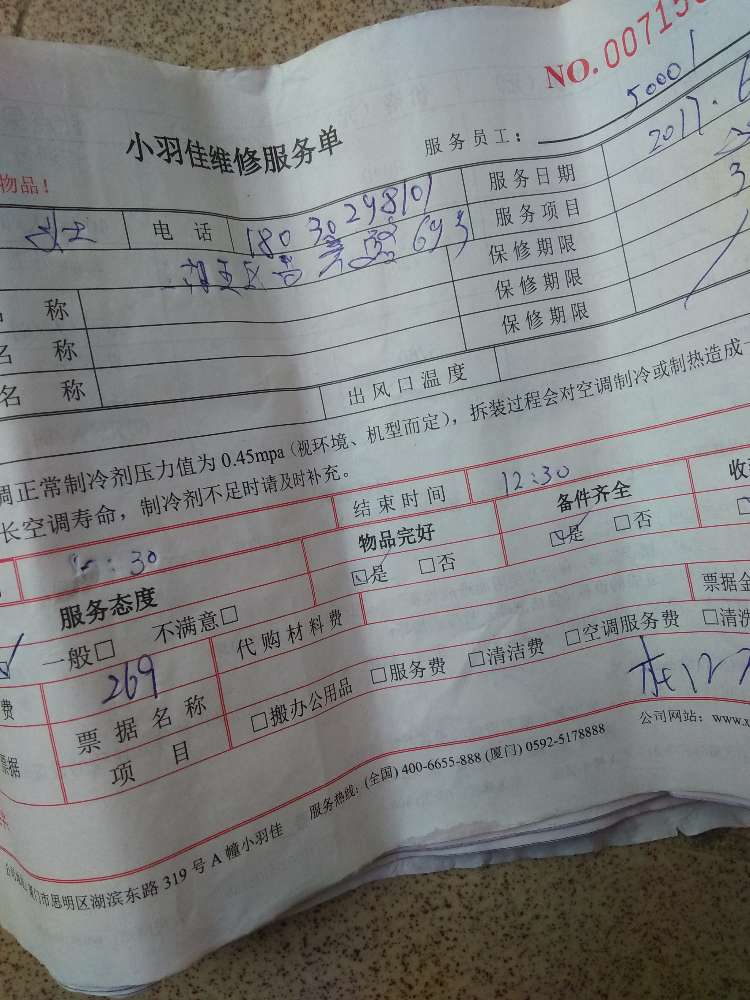 NO.00715
50001
小羽佳维修服务单
服务员工：
物品！
电话 18030298101
服务日期 2017.6
服务项目
湖里区 693
保修期限 3
名称
保修期限
名称
保修期限
名称
出风口温度
调正常制冷剂压力值为 0.45mpa（视环境、机型而定），拆装过程会对空调制冷或制热造成一
长空调寿命，制冷剂不足时请及时补充。
结束时间 12:30
:30
物品完好 备件齐全 收
☑是 □否 ☑是 □否 □
服务态度
一般□ 不满意□
代购材料费 票据金
费 269
票据名称
□搬办公用品 □服务费 □清洁费 □空调服务费 □清洗
票据 项目
服务热线：(全国) 400-6655-888 (厦门) 0592-5178888 公司网站：www.x
门市思明区湖滨东路 319 号 A 幢小羽佳